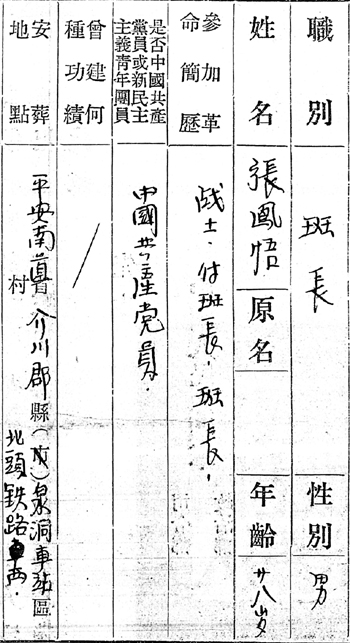 職別 班長 性別 男
姓名 張鳳悟 原名 年齡 廿八岁
參加革
命簡歷
战士、付班長、班長.
是否中國共產
黨員或新民主
主義青年團員
中國共產党員.
曾建何
種功績
安葬
地點
平安南道 介川郡縣(市)泉洞車站區
村 北頭铁路 西.